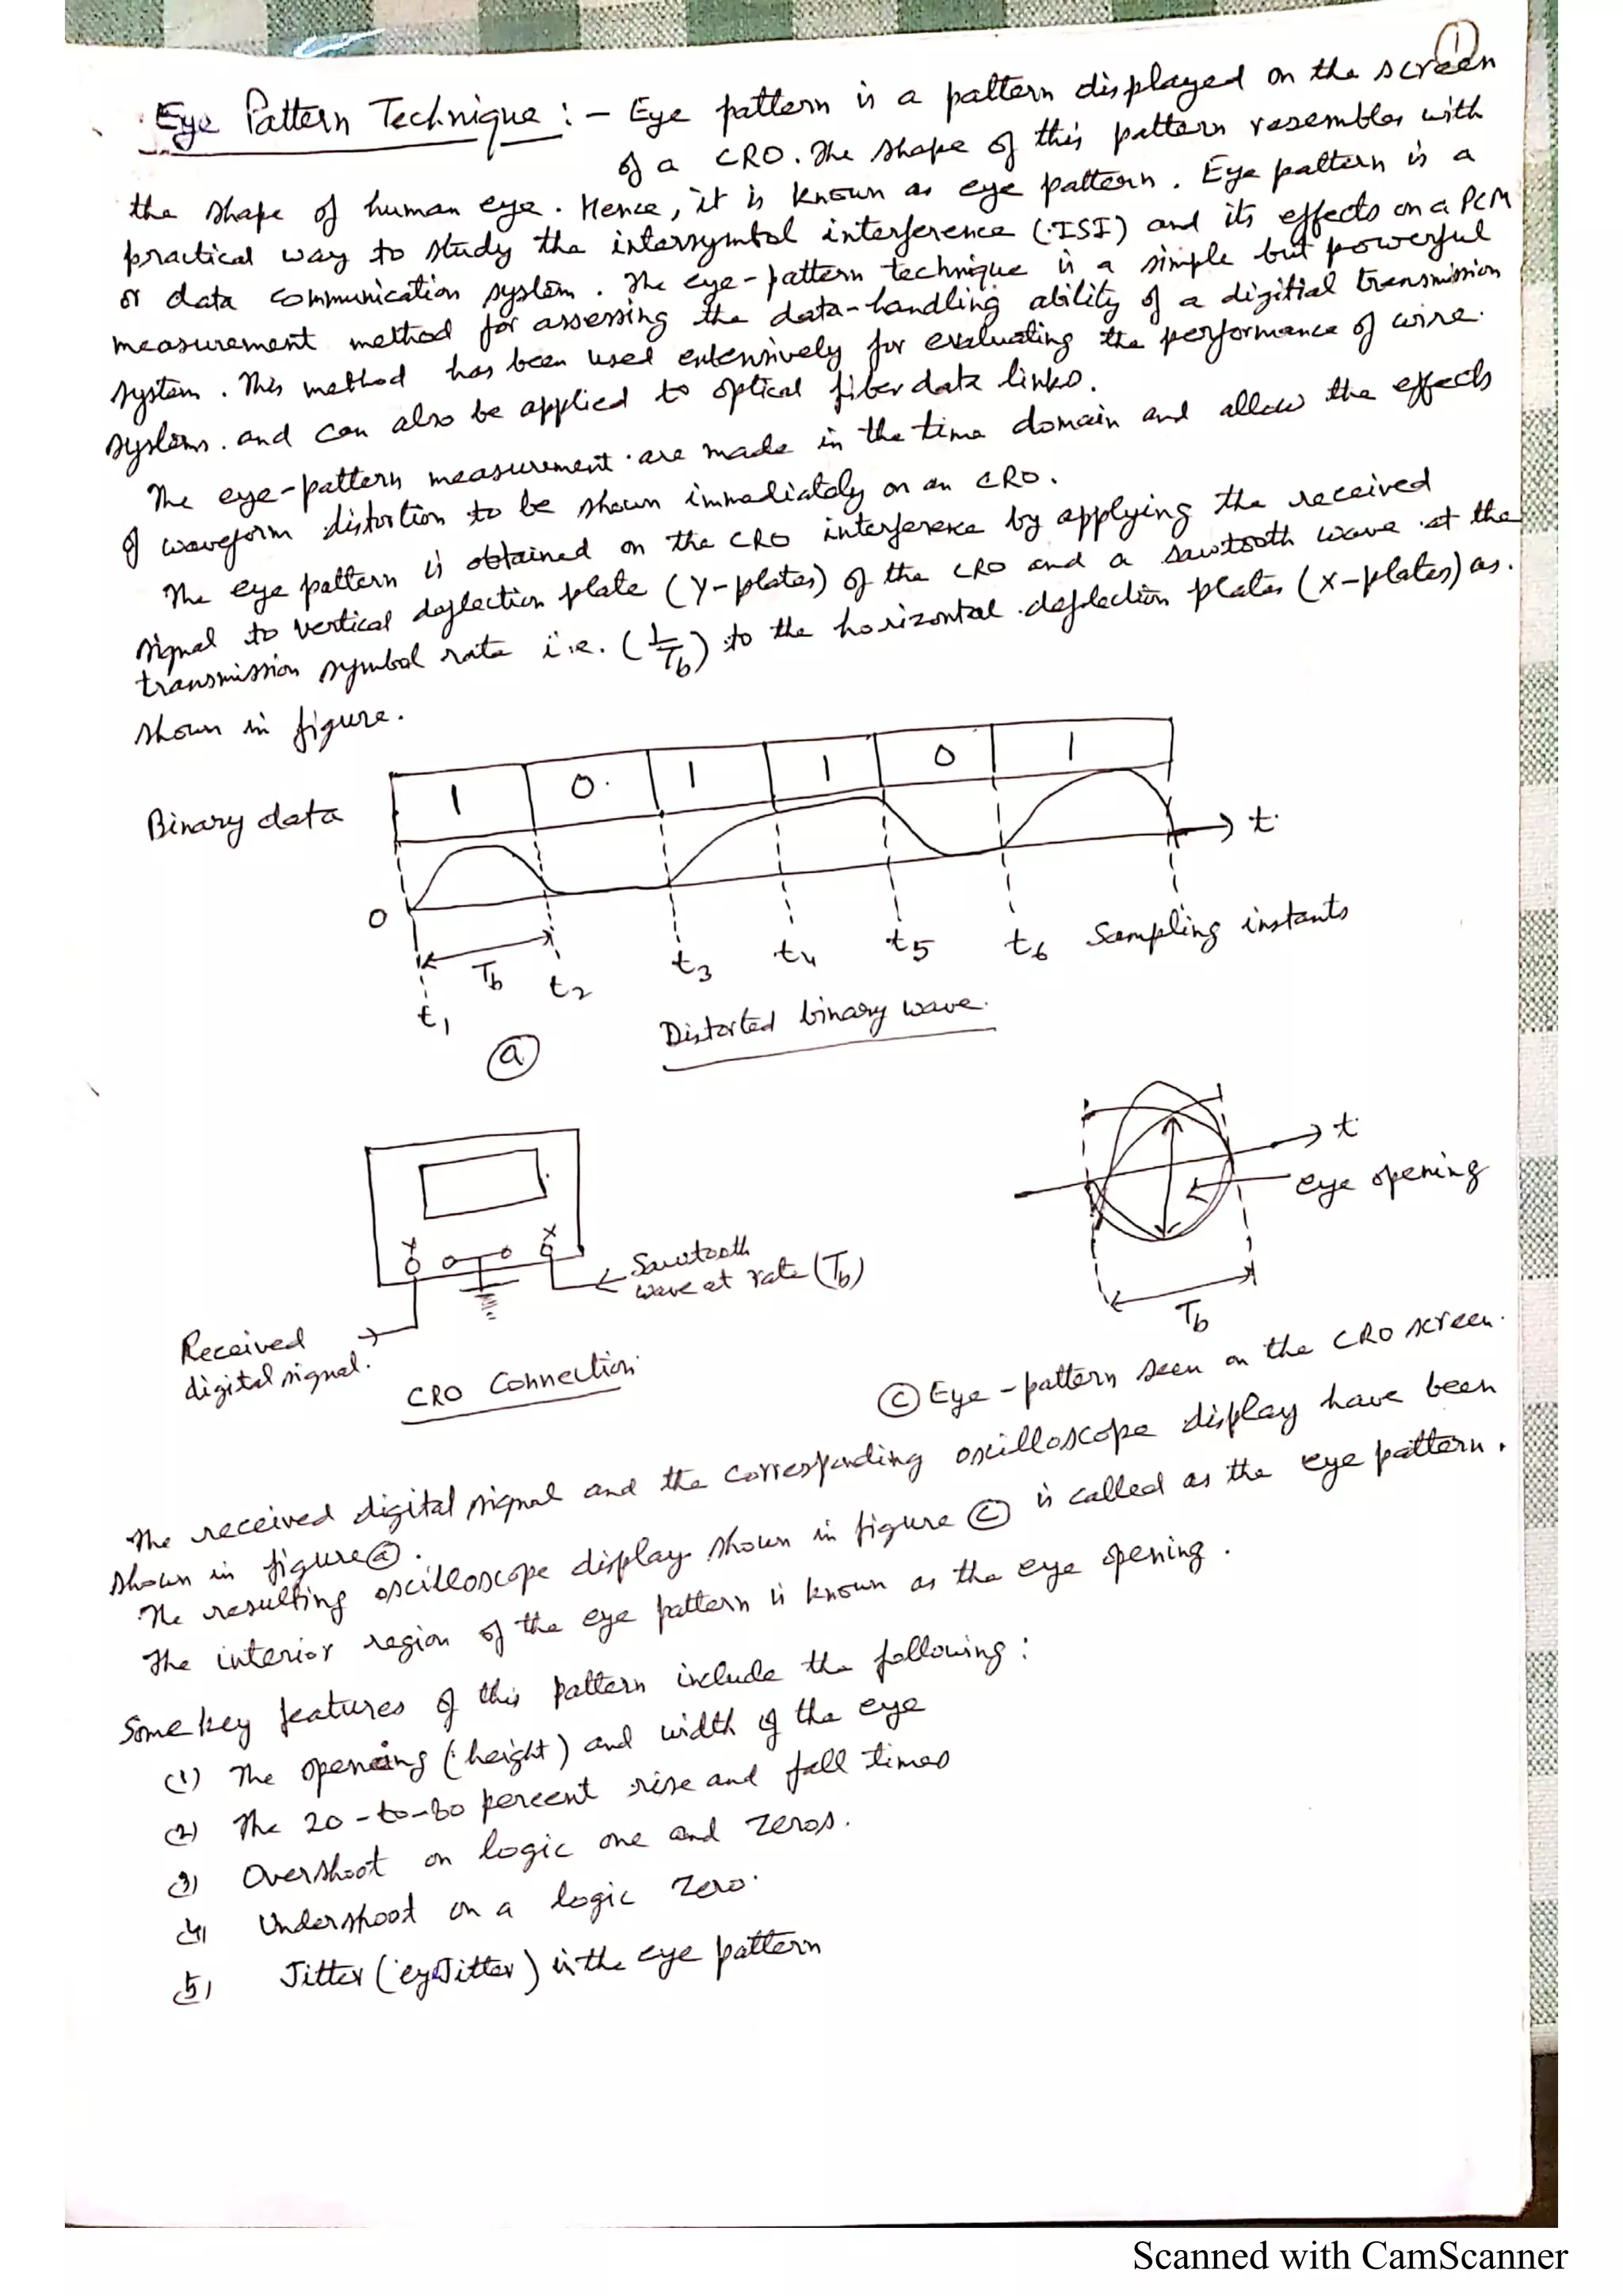 1
Eye Pattern Technique :- Eye pattern is a pattern displayed on the screen
of a CRO. The shape of this pattern resembles with
the shape of human eye. Hence, it is known as eye pattern. Eye pattern is a
practical way to study the intersymbol interference (ISI) and its effects on a PCM
or data communication system. The eye-pattern technique is a simple but powerful
measurement method for assessing the data-handling ability of a digitial transmission
system. This method has been used extensively for evaluating the performance of wire
systems. and can also be applied to optical fiber data links.
The eye-pattern measurement are made in the time domain and allow the effects
of waveform distortion to be shown immediately on an CRO.
The eye pattern is obtained on the CRO interference by applying the received
signal to vertical deflection plate (Y-plates) of the CRO and a sawtooth wave at the
transmission symbol rate i.e. (1/Tb) to the horizontal deflection plates (X-plates) as.
shown in figure.
Binary data 1 0 1 1 0 1
t
0
Tb
t1 t2 t3 t4 t5 t6 Sampling instants
(a) Distorted binary wave.
t
eye opening
Y X
Sawtooth
wave at rate (Tb)
Tb
Received
digital signal.
CRO Connection
(c) Eye-pattern seen on the CRO screen.
The received digital signal and the corresponding oscilloscope display have been
shown in figure (a).
The resulting oscilloscope display shown in figure (c) is called as the eye pattern.
The interior region of the eye pattern is known as the eye opening.
Some key features of this pattern include the following:
(1) The opening (height) and width of the eye
(2) The 20-to-80 percent rise and fall times
(3) Overshoot on logic one and zeros.
(4) Undershoot on a logic zero.
(5) Jitter (eyeJitter) in the eye pattern
Scanned with CamScanner